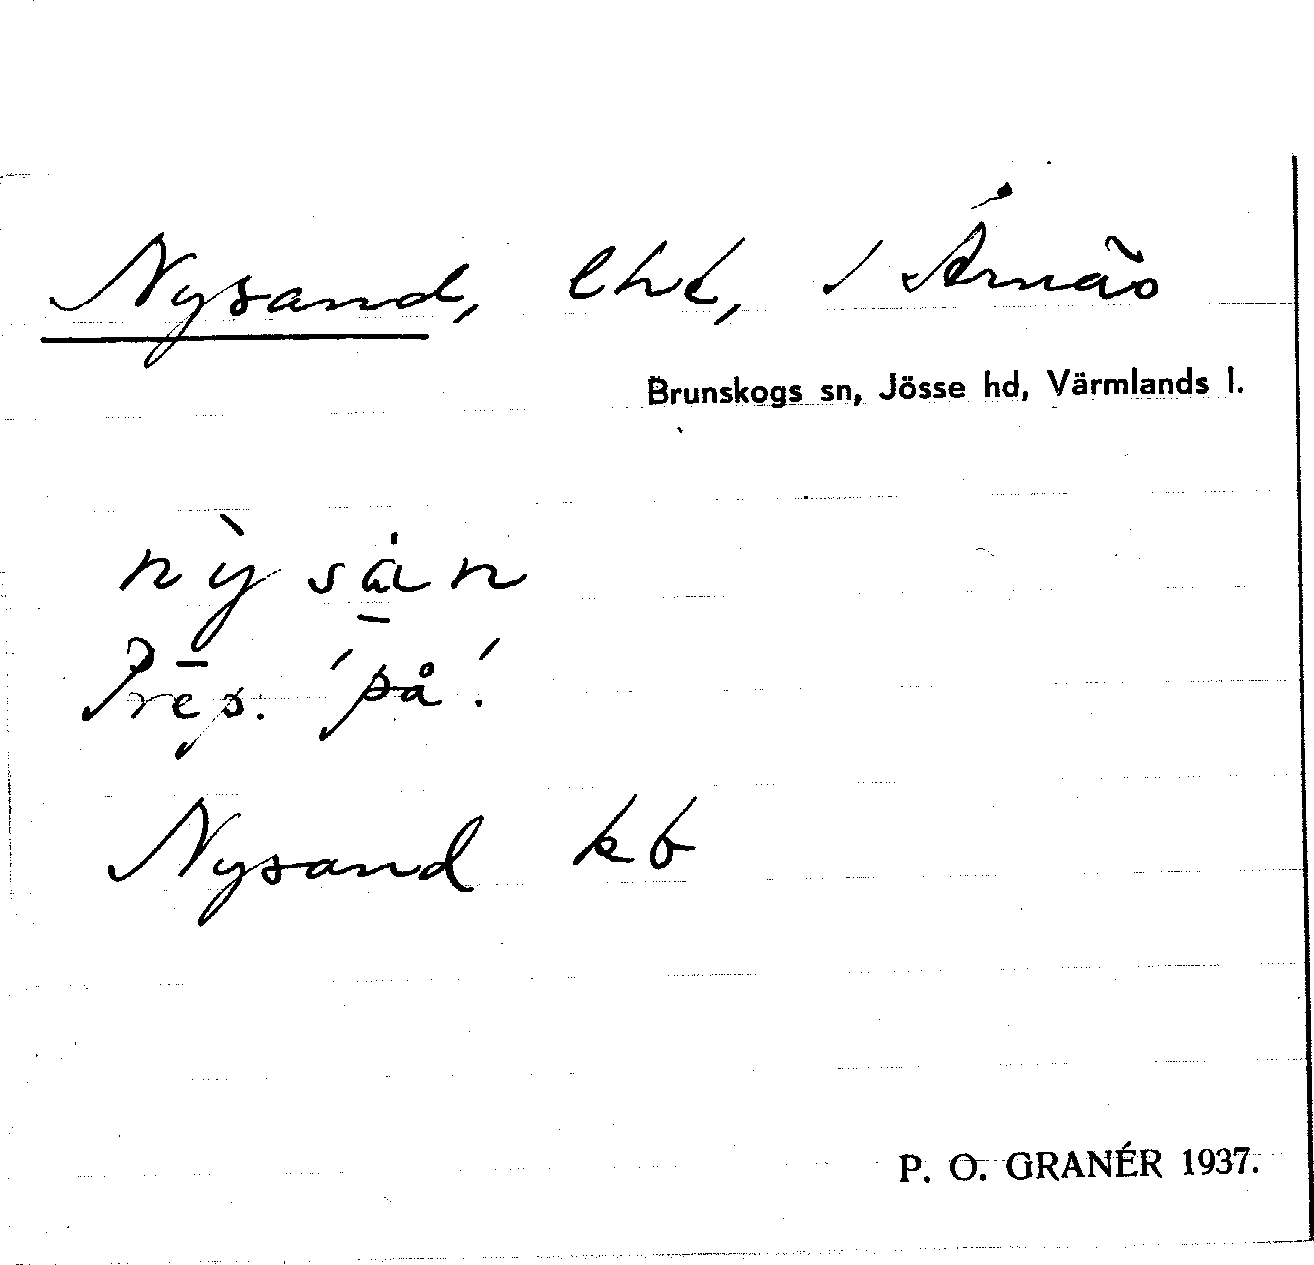 Nysand, lht, / Årnäs
Brunskogs sn, Jösse hd, Värmlands l.
nỳsȧn
Prep. 'på'.
Nysand kb
P. O. GRANÉR 1937.